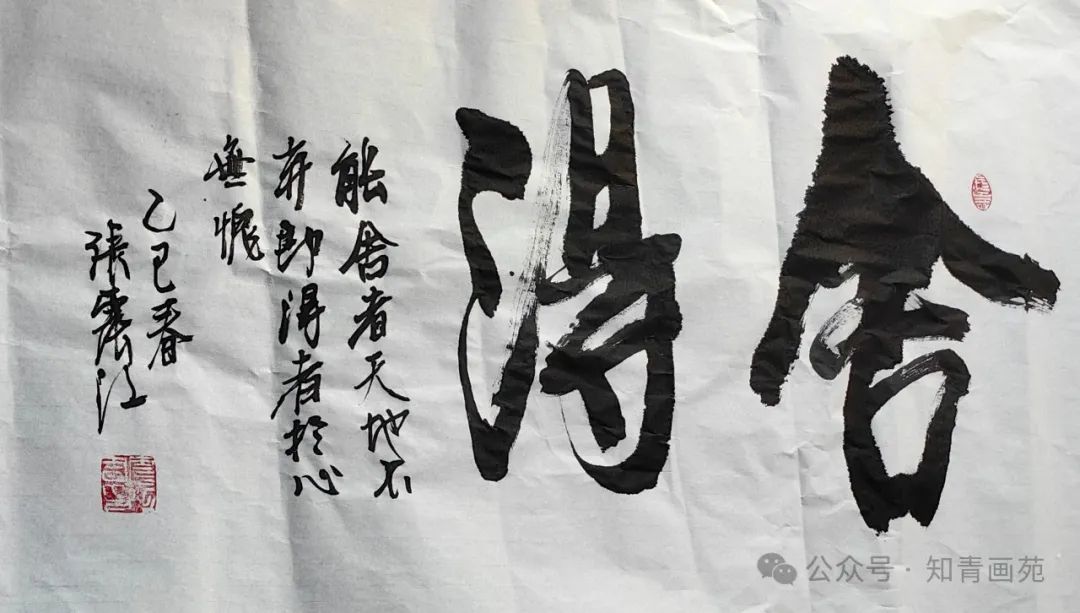 舍得
能舍者天地不
弃即得者於心
無愧
乙巳春
張震江
公众号 · 知青画苑